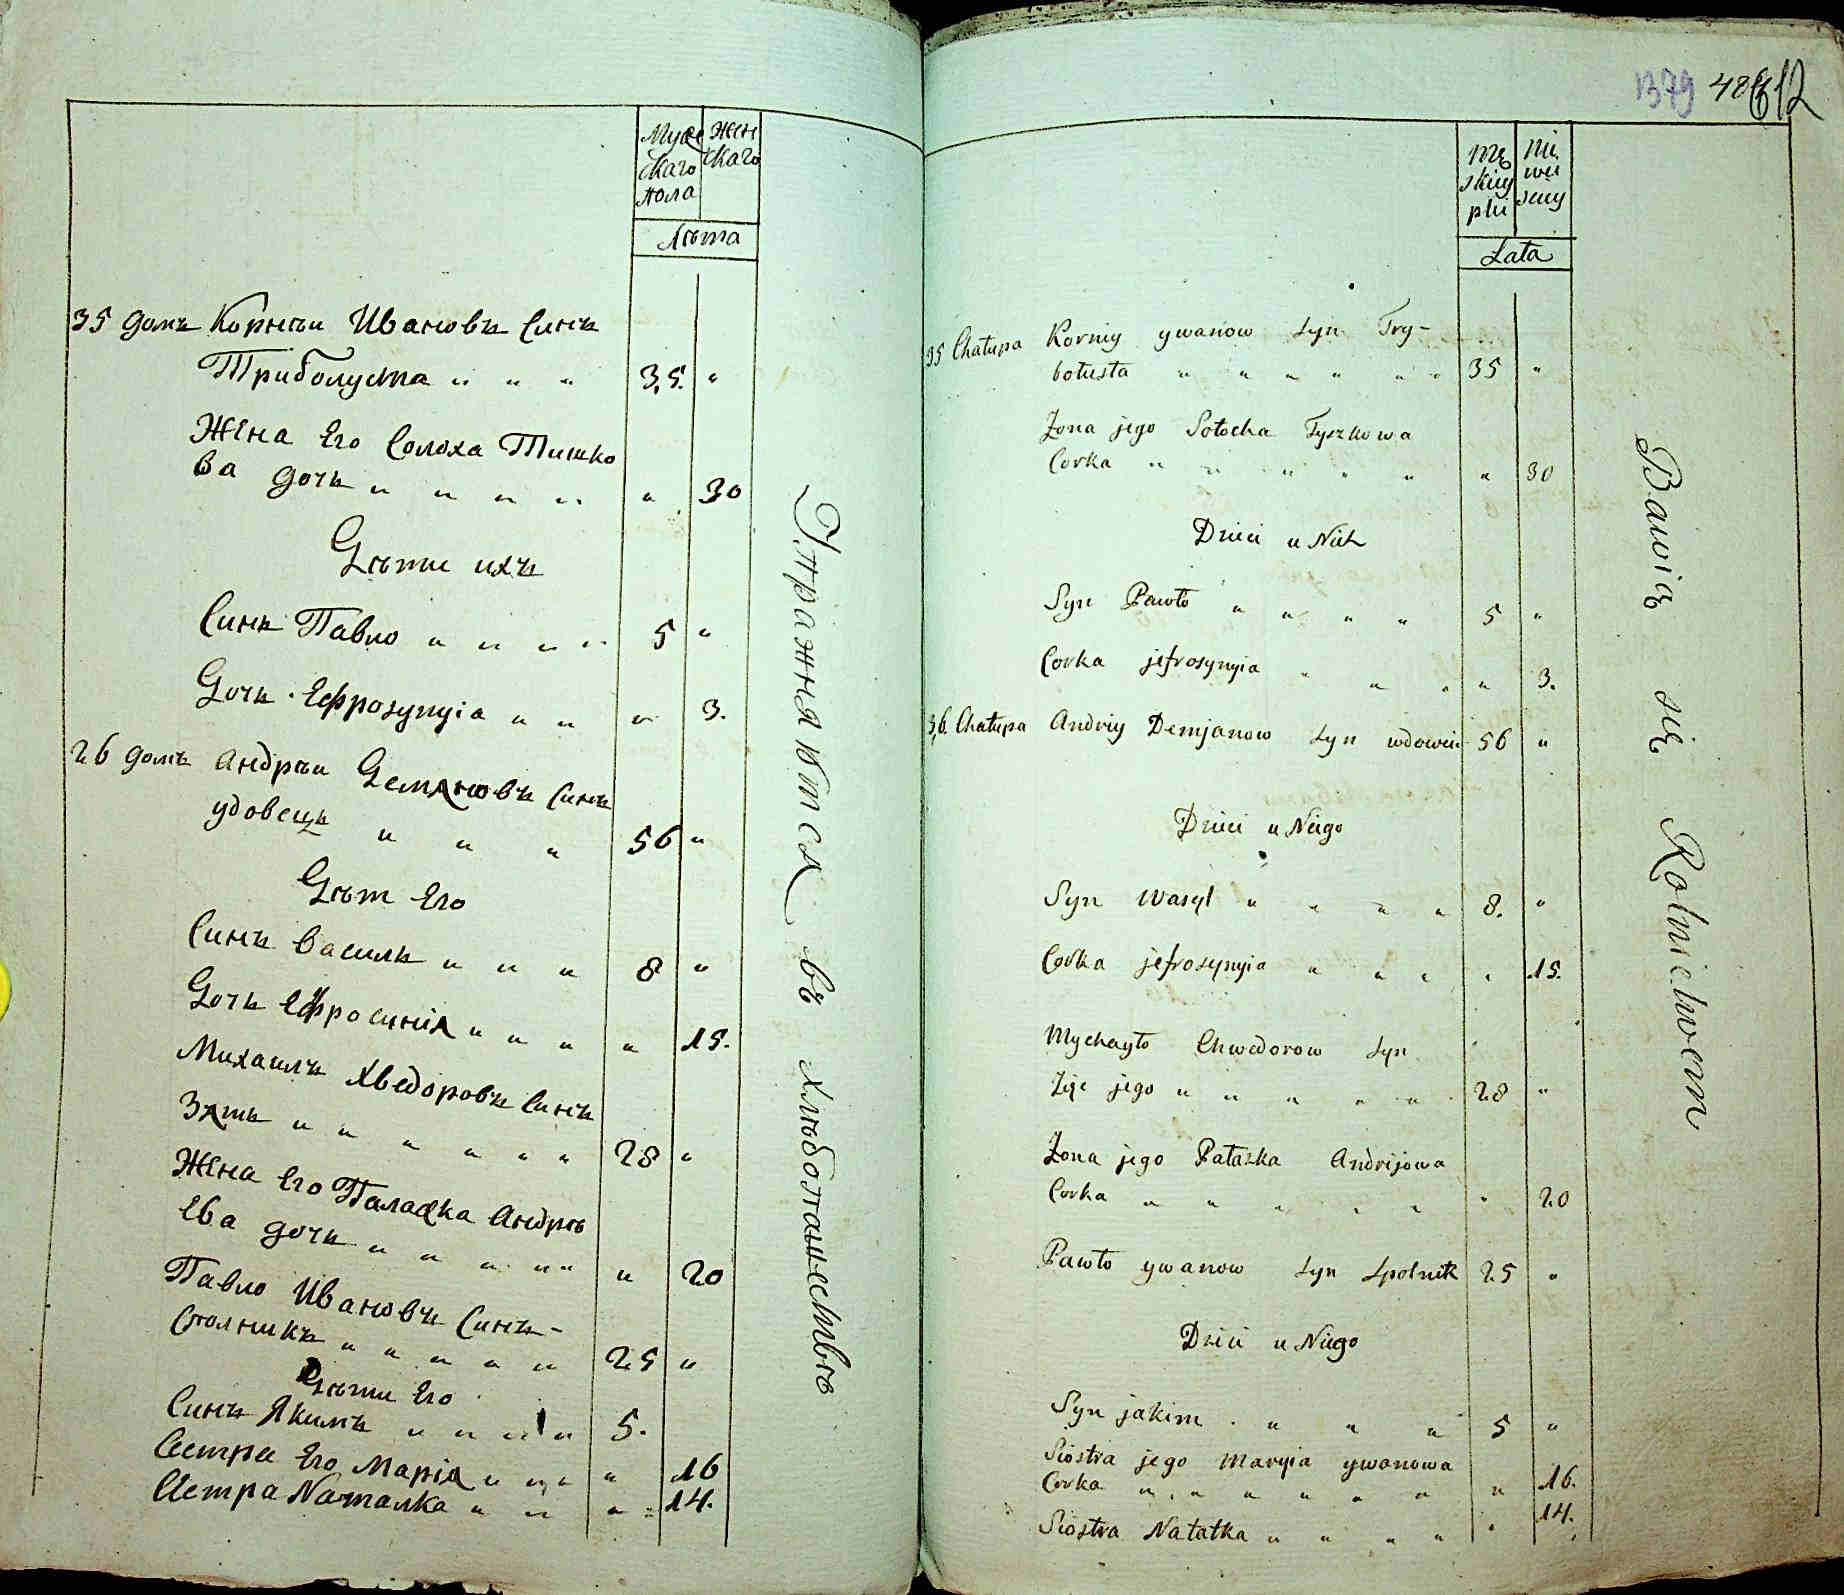 Мужескаго пола
Женскаго
Лѣта
35 домъ Корнѣи Ивановъ Синъ
Триболуста " " " 35. "
Жена Его Солоха Тишко
ва дочь " " " " " 30
Дѣти ихъ
Синъ Павло " " " " 5 "
Дочь Ефроsynyiа " " " 3.
26 домъ Андрѣи Демяновъ Синъ
удовецъ " " " 56 "
Дѣт Его
Синъ Василь " " " 8 "
Дочь Ефросинія " " " " 15.
Михаилъ Хведоровъ Синъ
Зять " " " " " " 28 "
Жена Его Палажка Андрѣ
ева дочь " " " " " " 20
Павло Ивановъ Синъ-
Сполникъ " " " " " 25 "
Дѣти Его
Синъ Якимъ " " " " 5.
Сестра Его Марія " " " " 16
Сестра Nаталка " " " 14.
Упражняются въ хлѣбопашествѣ
1379 486 612
Męskiey płci
Niewiesciey
Lata
35 Chałupa Korniy ywanow syn Try-
bołusta " " " " " " 35 "
Żona jego Sołocha Tyszkowa
Corka " " " " " " 30
Dzieci u Nich
Syn Pawło " " " " 5 "
Corka jefrosynyia " " " " 3.
36. Chałupa Andriy Demjanow syn wdowiec 56 "
Dzieci u Niego
Syn Wasyl " " " " 8. "
Corka jefrosynyia " " " " 15.
Mychayło Chwedorow syn
Zięc jego " " " " " 28 "
Żona jego Pałażka Andrijowa
Corka " " " " " " 20
Pawło ywanow syn spolnik 25 "
Dzieci u Niego
Syn jakim . " " " 5 "
Siostra jego Maryia ywanowa
Corka " " " " " " " 16.
Siostra Natałka " " " " " 14.
Bawią się Rolnictwem